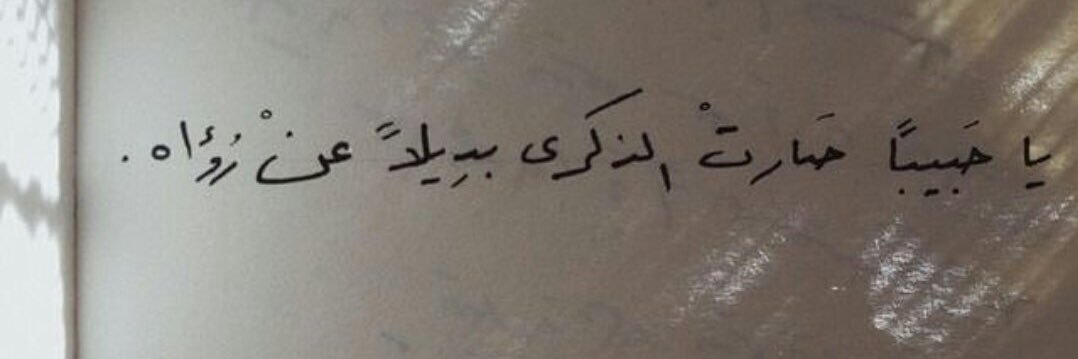 يا حَبيبًا صَارتْ الذكرى بدِيلاً عنْ رُؤاه.